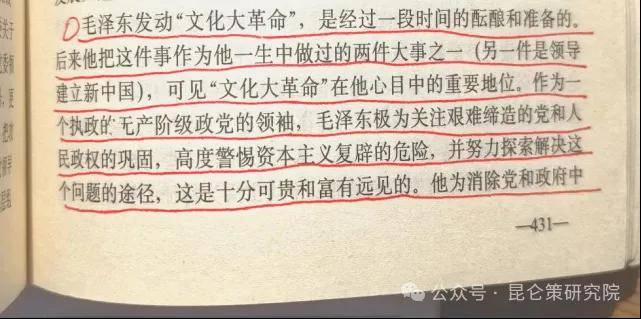 毛泽东发动“文化大革命”，是经过一段时间的酝酿和准备的。
后来他把这件事作为他一生中做过的两件大事之一（另一件是领导
建立新中国），可见“文化大革命”在他心目中的重要地位。作为一
个执政的无产阶级政党的领袖，毛泽东极为关注艰难缔造的党和人
民政权的巩固，高度警惕资本主义复辟的危险，并努力探索解决这
个问题的途径，这是十分可贵和富有远见的。他为消除党和政府中
—431—
公众号·昆仑策研究院